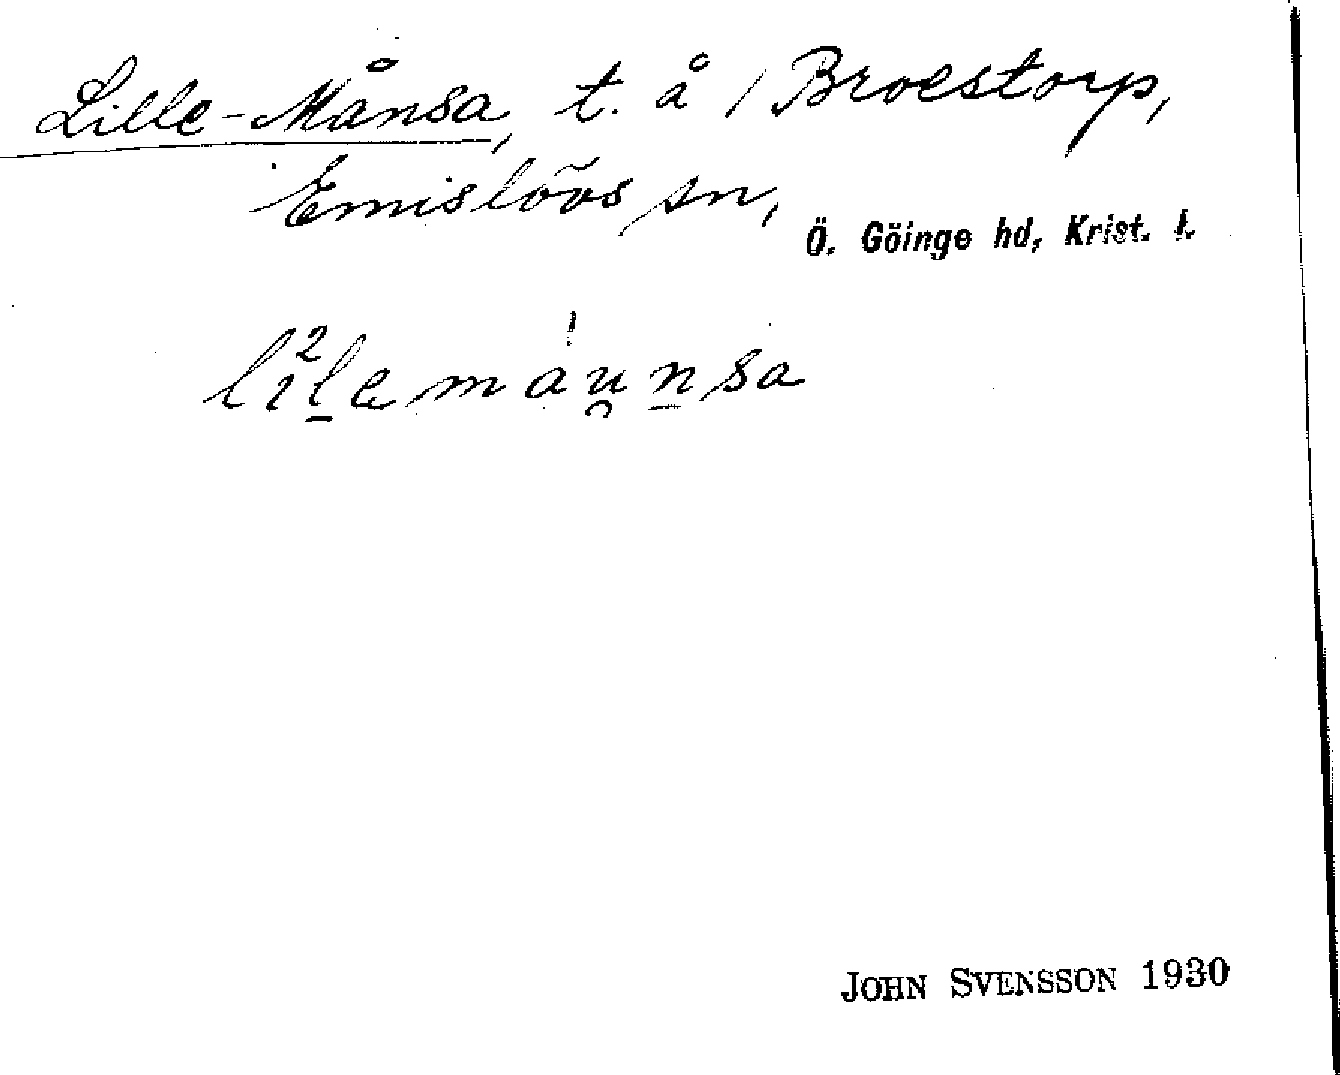 Lille-Månsa, t. å / Broestorp,
Emislövs sn,
Ö. Göinge hd, Krist. l.
li²l̲emáu̯n̲sa
JOHN SVENSSON 1930